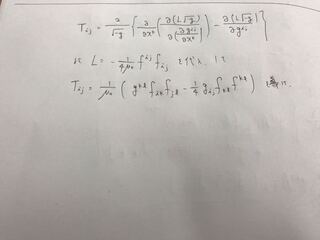 T_{ij} = \frac{2}{\sqrt{-g}} \left\{ \frac{\partial}{\partial x^k} \left( \frac{\partial (L\sqrt{-g})}{\partial \left( \frac{\partial g^{ij}}{\partial x^k} \right)} \right) - \frac{\partial (L\sqrt{-g})}{\partial g^{ij}} \right\}
に L = -\frac{1}{4\mu_0} f^{ij} f_{ij} を代入して
T_{ij} = \frac{1}{\mu_0} \left( g^{kl} f_{ik} f_{jl} - \frac{1}{4} g_{ij} f_{kl} f^{kl} \right)